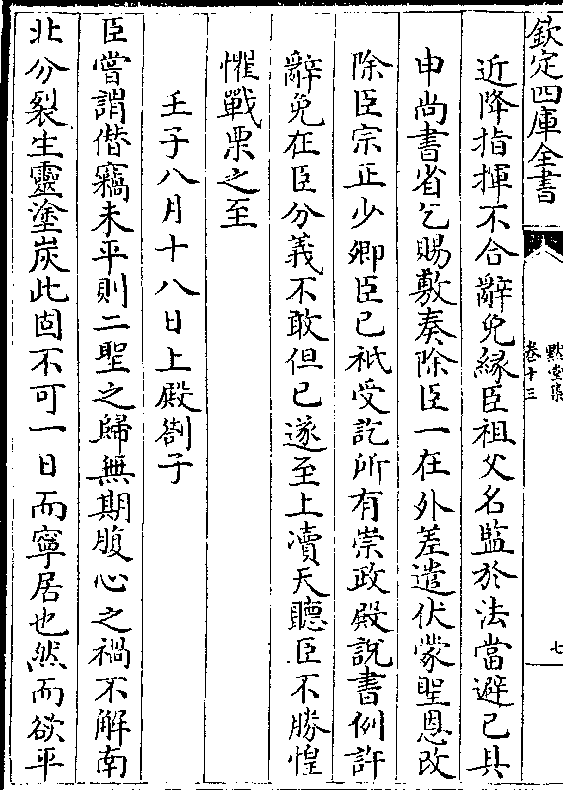 欽定四庫全書
卷十三
七
近降指揮不合辭免緣臣祖父名監於法當避已具
申尚書省乞賜敷奏除臣一在外差遣伏蒙聖恩改
除臣宗正少卿臣已祇受訖所有崇政殿説書例許
辭免在臣分義不敢但已遂至上凟天聽臣不勝惶
懼戰栗之至
壬子八月十八日上殿劄子
臣嘗謂僣竊未平則二聖之歸無期腹心之禍不解南
北分裂生靈塗炭此固不可一日而寧居也然而欲平